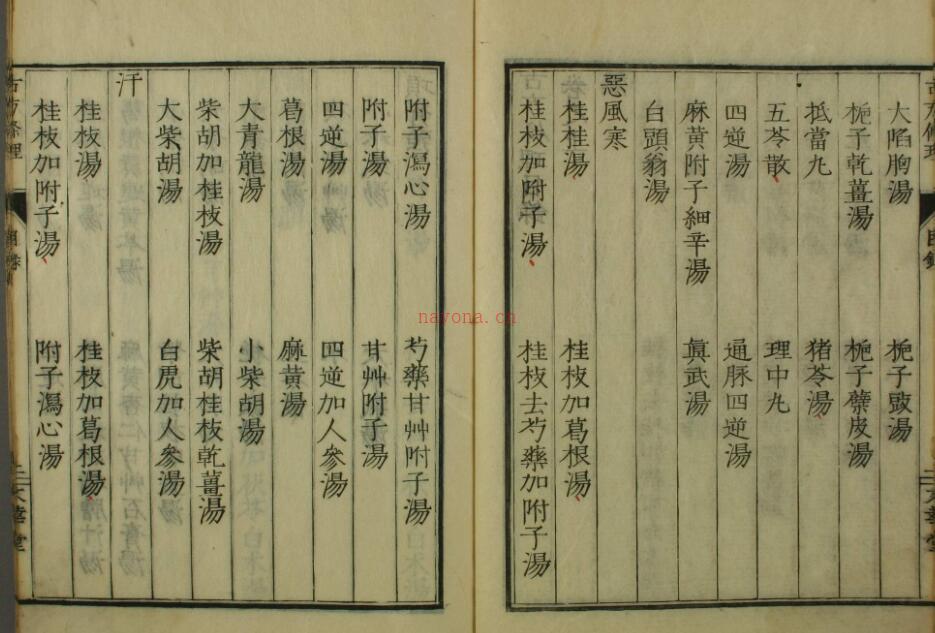 大陷胸湯 梔子豉湯
梔子乾薑湯 梔子蘗皮湯
抵當丸 猪苓湯
五苓散 理中丸
四逆湯 通脈四逆湯
麻黃附子細辛湯 眞武湯
白頭翁湯
惡風寒
桂枝湯 桂枝加葛根湯
桂枝加附子湯 桂枝去芍藥加附子湯
附子瀉心湯 芍藥甘艸附子湯
附子湯 甘艸附子湯
四逆湯 四逆加人參湯
葛根湯 麻黃湯
大青龍湯 小柴胡湯
柴胡加桂枝湯 柴胡桂枝乾薑湯
大柴胡湯 白虎加人參湯
汗
桂枝湯 桂枝加葛根湯
桂枝加附子湯 附子瀉心湯
nayona.cn